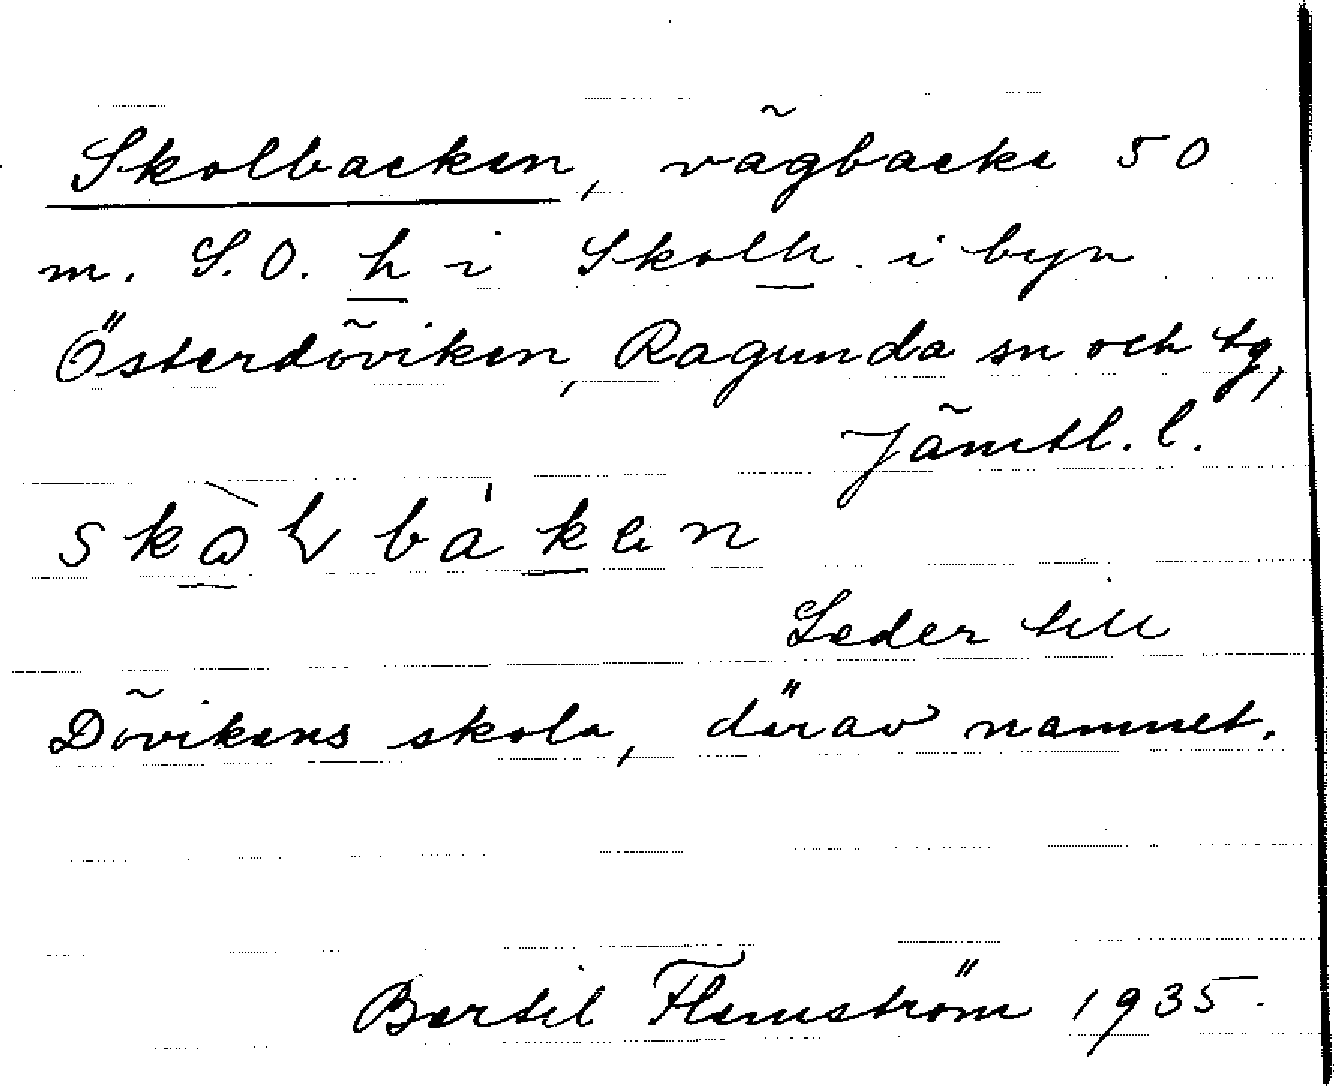 Skolbacken, vägbacke 50
m. S.O. h i Skolh. i byn
Österdöviken, Ragunda sn och tg,
Jämtl. l.
Leder till
Dövikens skola, därav namnet.
Bertil Flemström 1935.